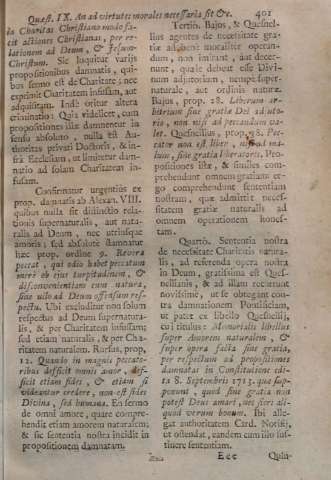 Quæst. IX. An ad virtutes morales necessaria sit &c. 401
la Charitas Christiano modo fa-
cit actiones Christianas, per re-
lationem ad Deum, & Jesum-
Christum. Sic loquitur varijs
propositionibus damnatis, qui-
bus sermo est de Charitate; nec
exprimit Charitatem infusam, aut
adquisitam. Inde oritur altera
criminatio: Quia videlicet, cum
propositiones illæ damnentur in
sensu absoluto, nulla est Au-
thoritas privati Doctoris, & in-
fra Ecclesiam, ut limitetur dam-
natio ad solam Charitatem in-
fusam.
Confirmatur urgentius ex
prop. damnatis ab Alexan. VIII.
quibus nulla fit distinctio rela-
tionis supernaturalis, aut natu-
ralis ad Deum, nec utriusque
amoris; sed absolute damnatur
hæc prop. ordine 9. Revera
peccat, qui odio habet peccatum
mere ob ejus turpitudinem, &
disconvenientiam cum natura,
sine ullo ad Deum offensum res-
pectu. Ubi excluditur non solum
respectus ad Deum supernatura-
lis, & per Charitatem infusam;
sed etiam naturalis, & per Cha-
ritatem naturalem. Rursus, prop.
12. Quando in magnis peccato-
ribus deficit omnis amor, de-
ficit etiam fides, & etiam si
videantur credere, non est fides
Divina, sed humana. En sermo
de omni amore, quare compre-
hendit etiam amorem naturalem;
& sic sententia nostra incidit in
propositionem damnatam.
Tertio. Bajus, & Quesnel-
lius agentes de necesitate gra-
tiæ ad bene moraliter operan-
dum, non imitant, aut decer-
nunt, quale debeat esse Divi-
num adjutorium, nempe super-
naturale, aut ordinis naturæ.
Bajus, prop. 28. Liberum ar-
bitrium sine gratiæ Dei adjuto-
rio, non nisi ad peccandum va-
let. Quesnellius, prop. 38. Pec-
cator non est liber, nisi ad ma-
lum, sine gratia liberatoris. Pro-
positiones istæ, & similes com-
prehendunt omnem gratiam; er-
go comprehendunt sententiam
nostram, quæ admittit neces-
sitatem gratiæ naturalis ad
omnem operationem hones-
tam.
Quarto. Sententia nostra
de necesitate Charitatis natura-
lis, ad referenda opera nostra
in Deum, gratissima est Ques-
nellianis, & ad illam recurrunt
novissime, ut se obtegant con-
tra damnationem Pontificiam,
ut patet ex libello Quesnellij,
cui titulus: Memorialis libellus
super Amorem naturalem, &
super opera facta sine gratia,
per respectum ad propositiones
damnatas in Constitutione edi-
ta 8. Septembris 1713. quæ sup-
ponunt, quod sine gratia non
potest Deus amari, nec fieri ali-
quod verum bonum. Ibi alle-
gat authoritatem Card. Norisij,
ut ostendat, eandem cum illo sus-
tinere sententiam.
Eee Quin-